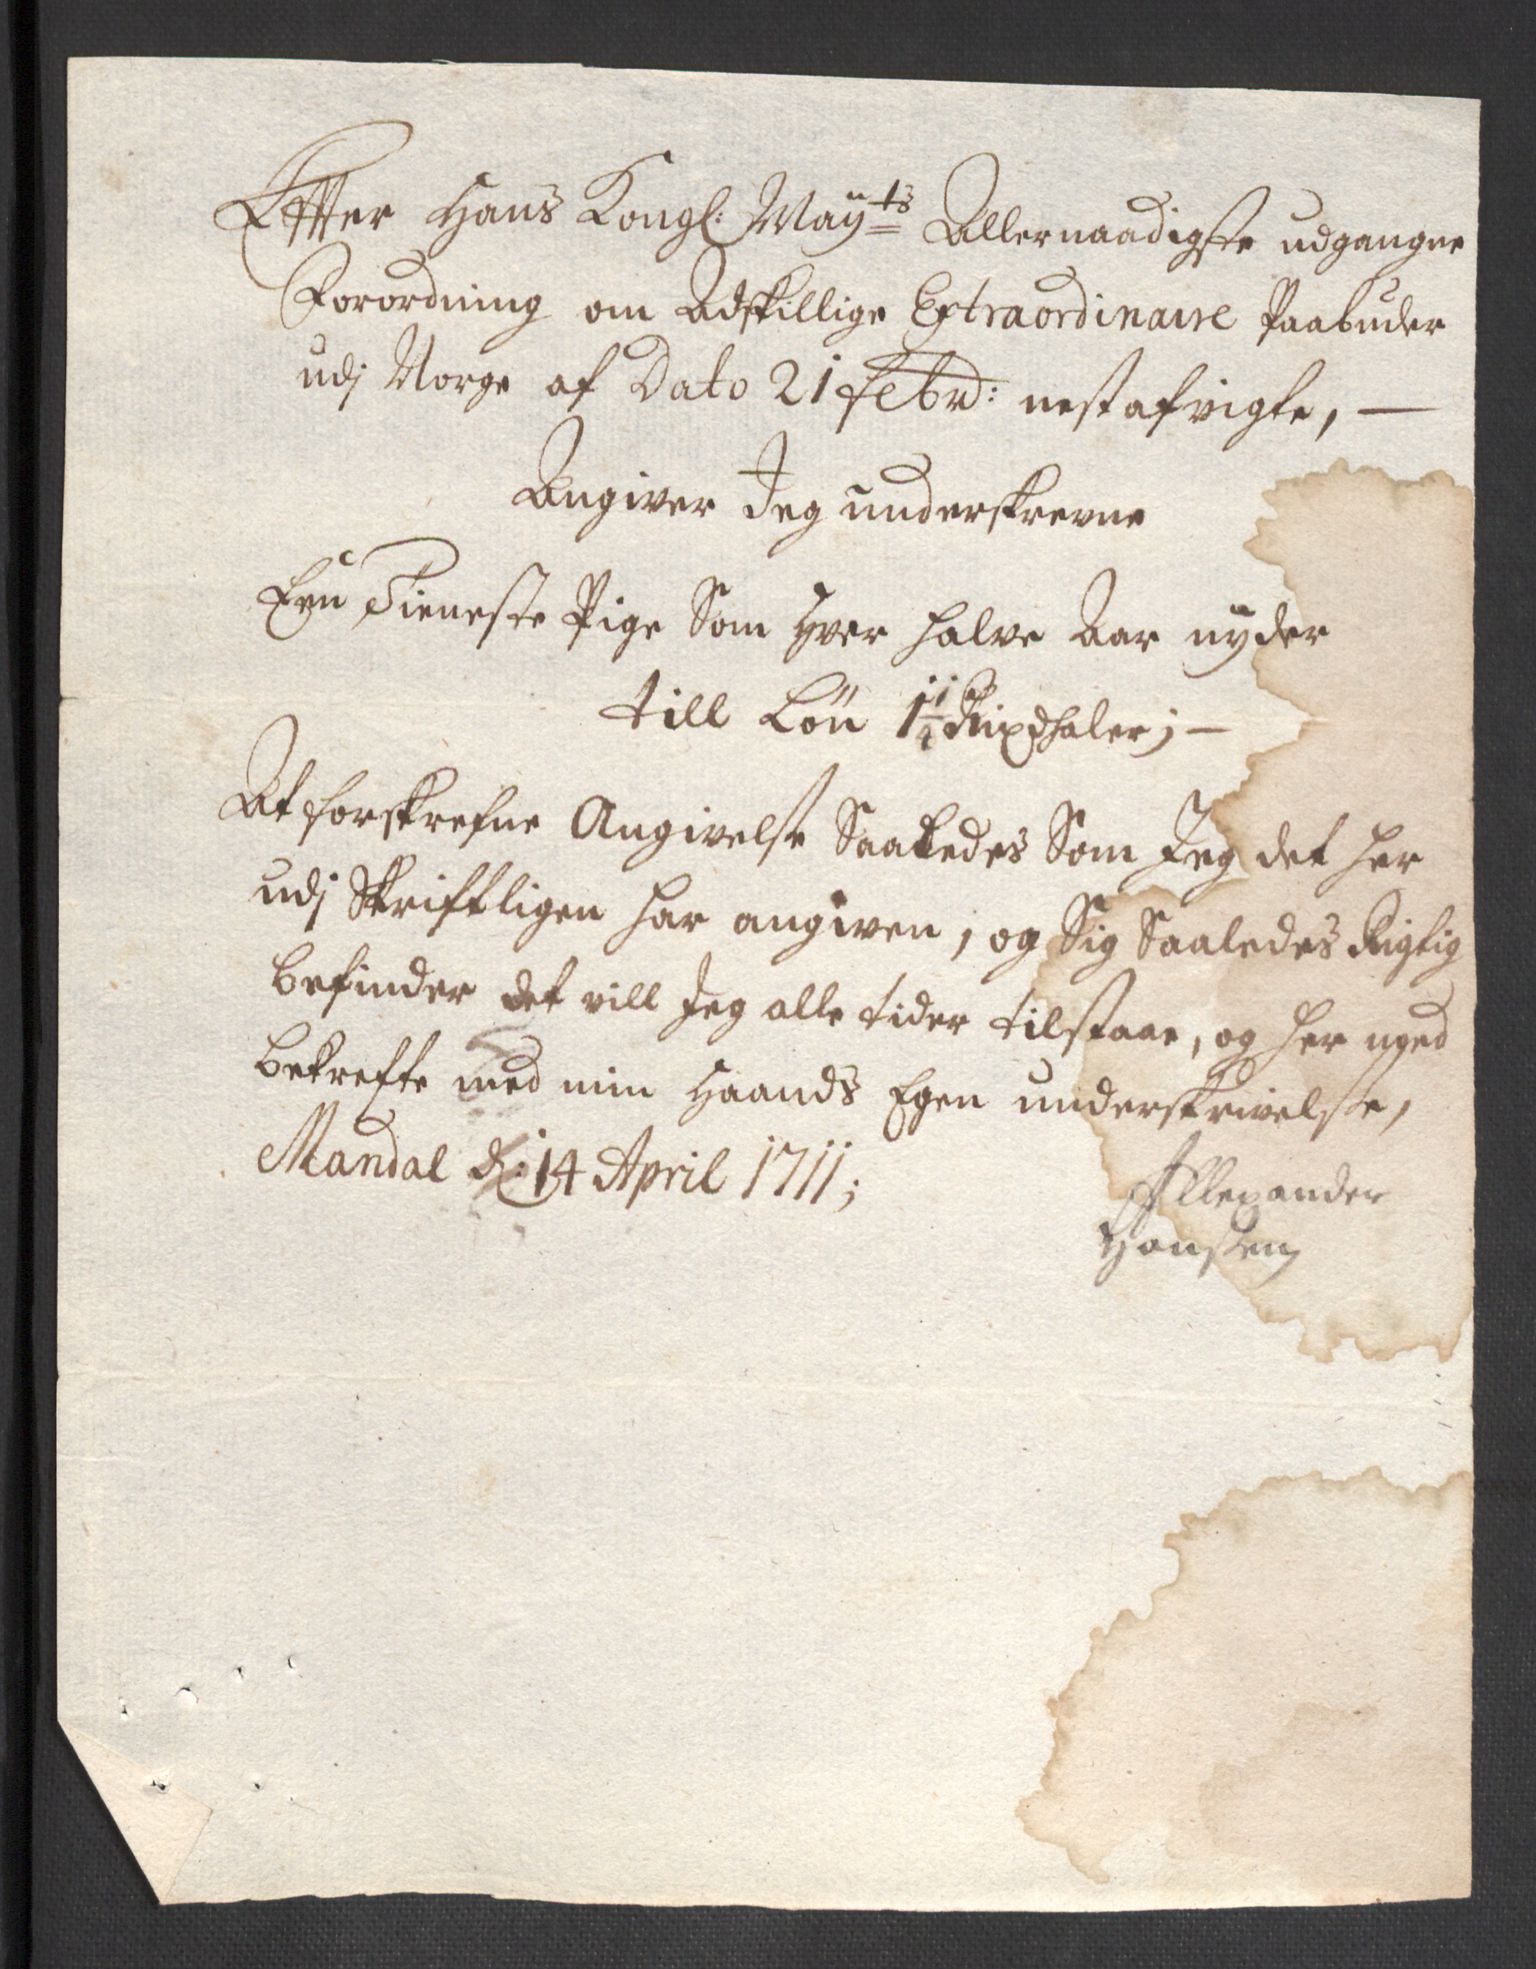 Effter Hans Kongl: Maÿts Allernaadigste udgangne
Forordning om Adskillige Extraordinaire Paabuder
udj Norge af Dato 21 Febr: nest afvigte, —
Angiver Jeg underskrevne
Een Tieneste Pige Som Hver halve Aar nÿder
till Løn 1¼ Rixdhaler; —
At forskrefne Angivelse Saaledes Som Jeg det her
udj Skriftligen har angiven, og Sig Saaledes Rigtig
befinder det vill Jeg alle tider tilstaae, og her med
bekrefte med min Haands Egen underskrivelse,
Mandal d: 14 April 1711;
Allexander
Hanssen